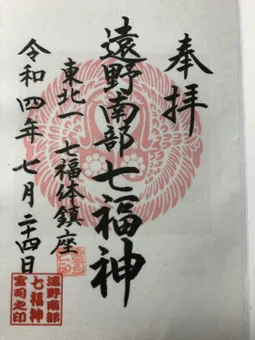 奉拝
遠野南部七福神
東北一 七福体鎮座
令和四年七月二十四日
遠野南部
七福神
宮司之印